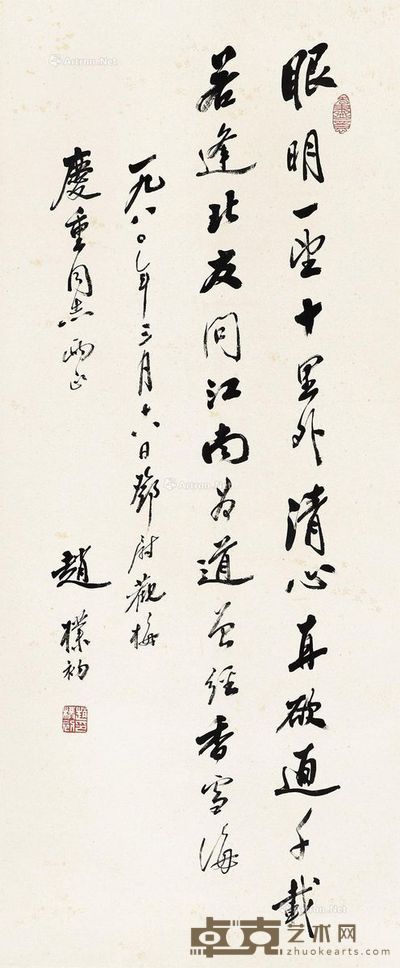 眼明一望十里外清心真欲通千載
若逢北友問江南為道曾經香雪海
一九八〇年三月十八日鄧尉觀梅
慶重同志兩正
趙樸初
Artron.Net
Artron.Net
Artron.Net
卓克艺术网
zhuokearts.com